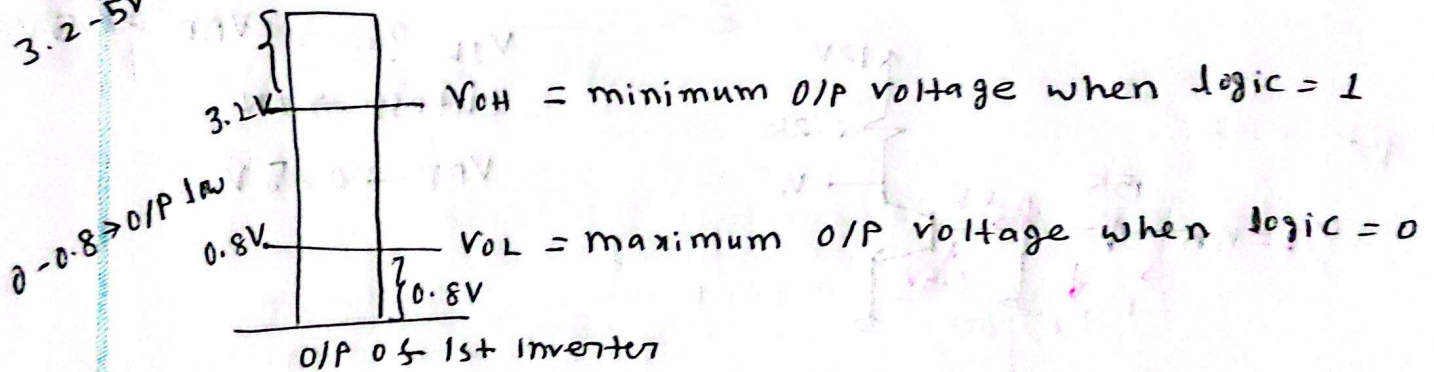 3.2-5V
3.2V VOH = minimum O/P voltage when logic = 1
0-0.8→O/P low
0.8V VOL = maximum O/P voltage when logic = 0
0.8V
O/P of 1st inverter